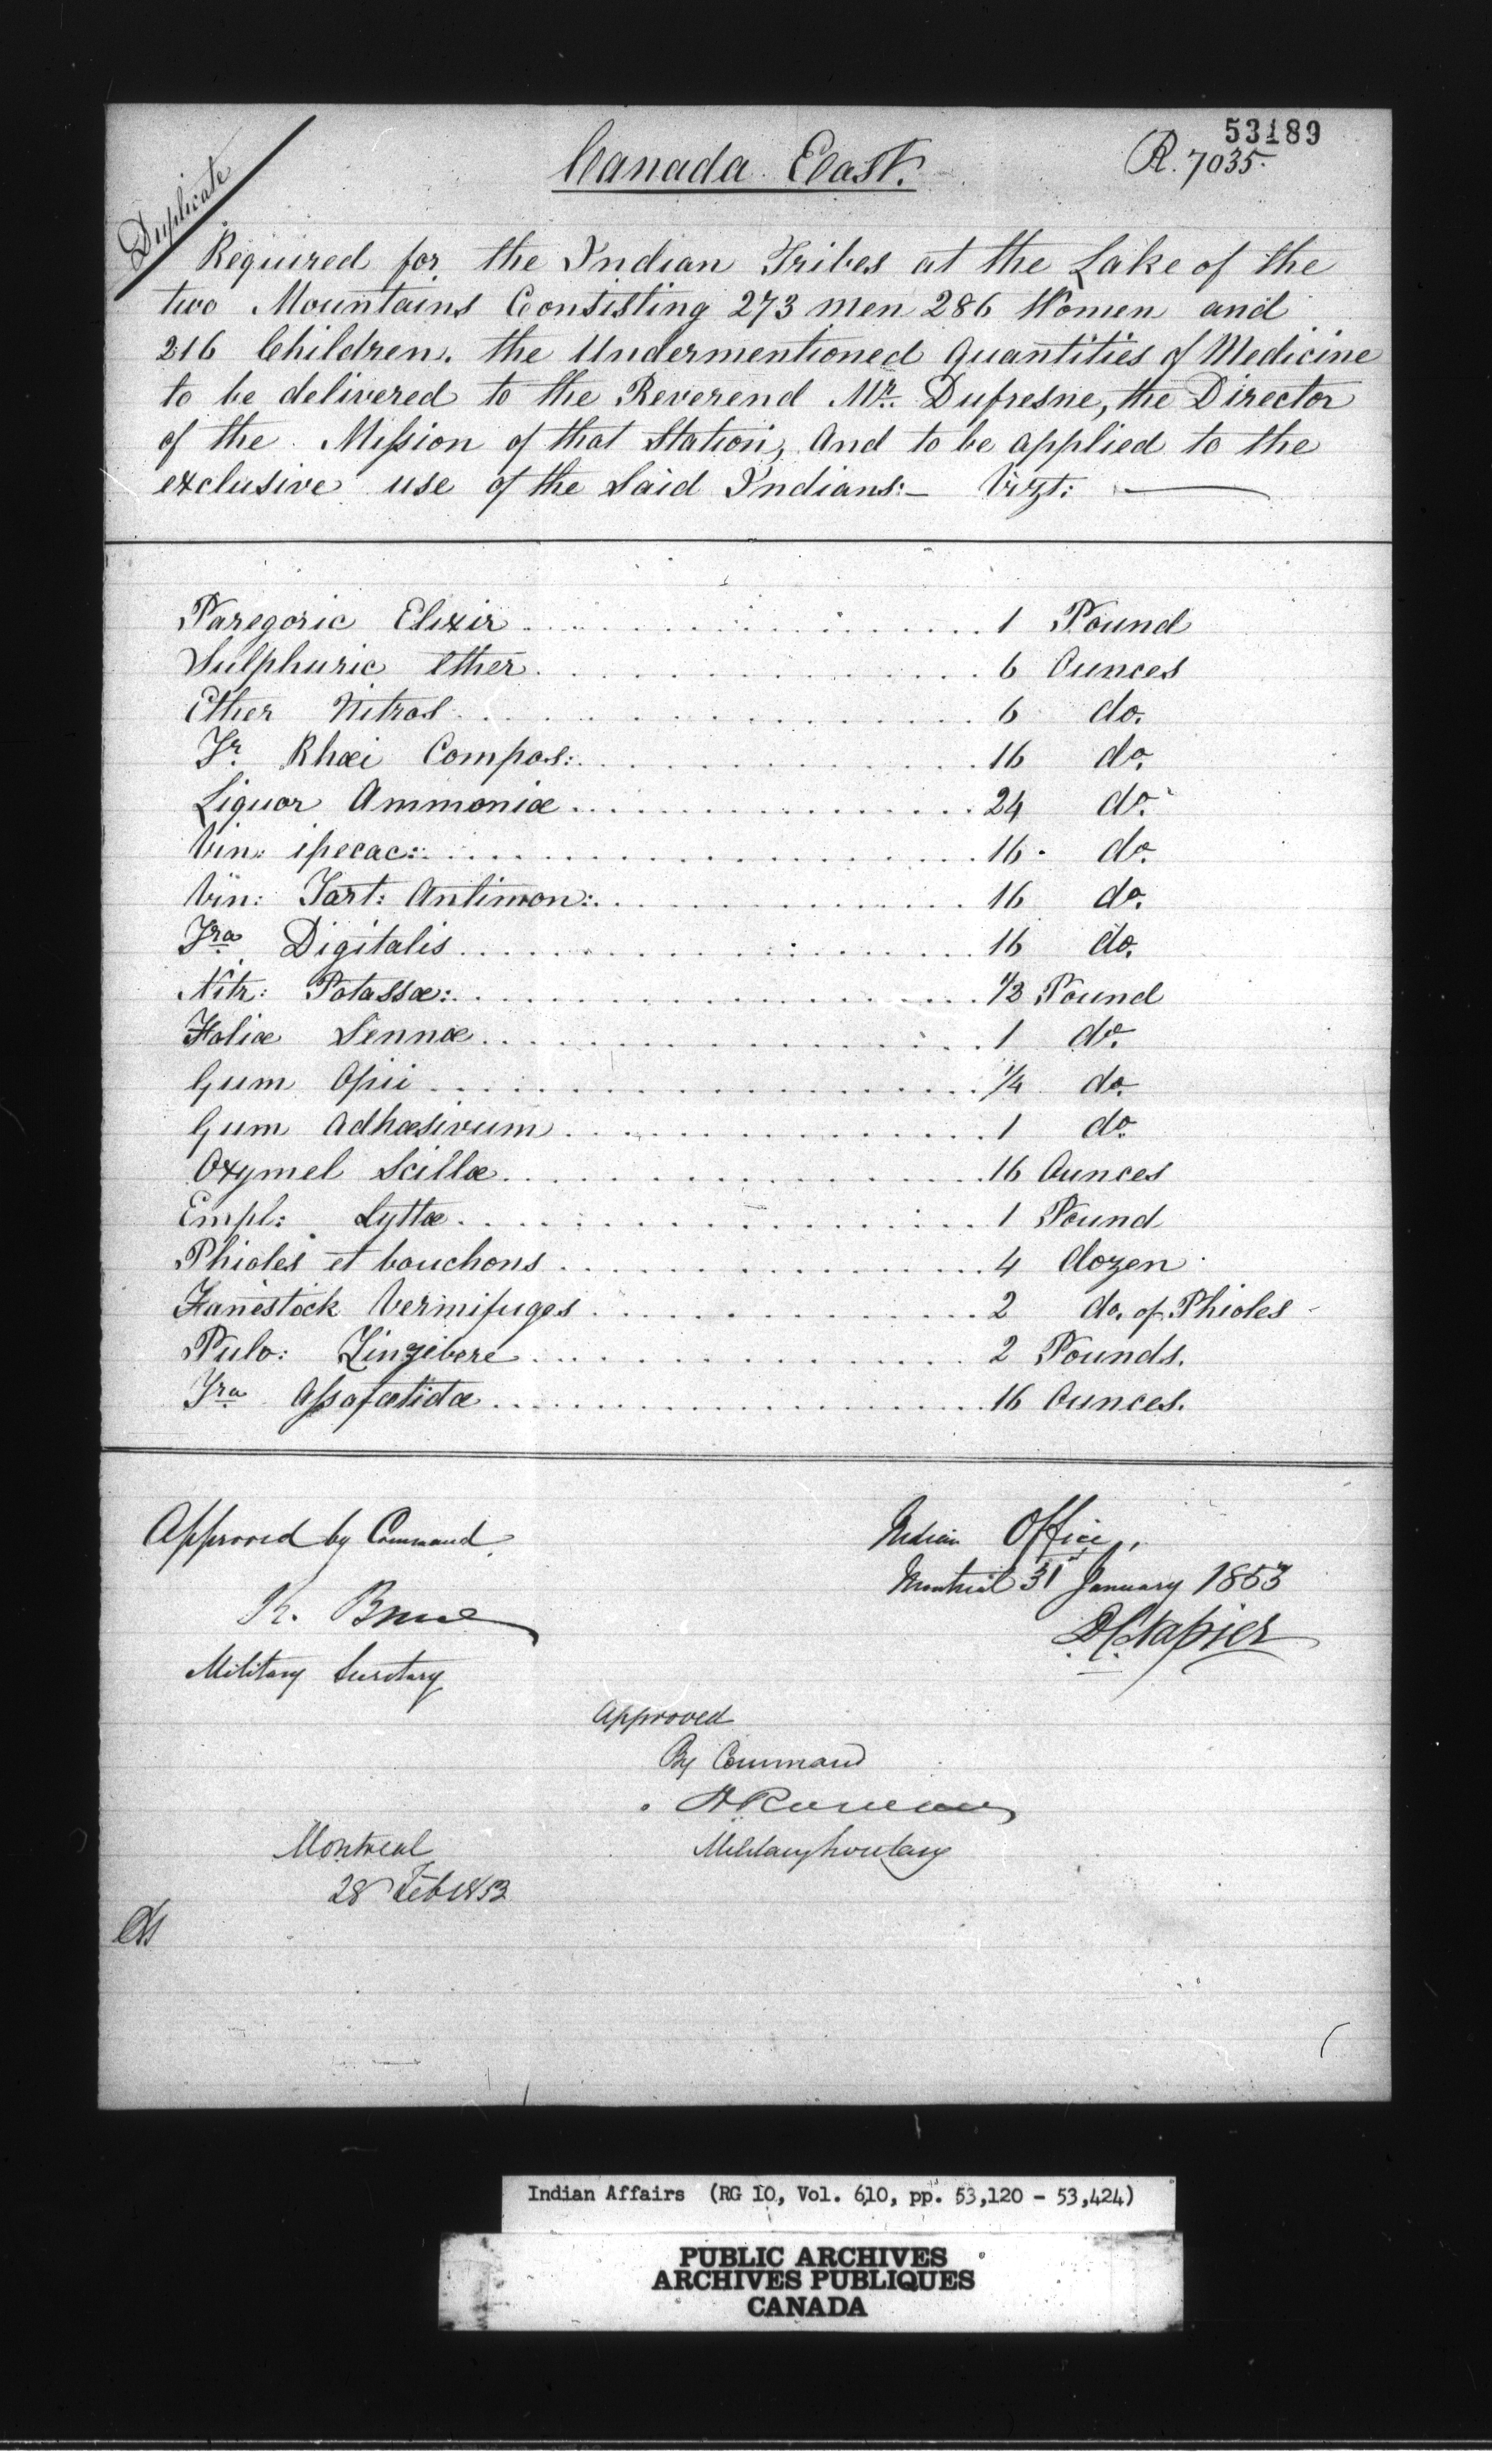 53189
Canada East.
R. 7035.
Duplicate
Required for the Indian Tribes at the Lake of the
two Mountains Consisting 273 men 286 Women and
216 Children. the Undermentioned Quantities of Medicine
to be delivered to the Reverend Mr. Dufresne, the Director
of the Mission of that Station, And to be applied to the
exclusive use of the Said Indians:— Vizt:
Paregoric Elixir 1 Pound
Sulphuric Ether 6 Ounces
Ether Nitros 6 do.
Tr. Rhæi Compos: 16 do.
Liquor Ammoniæ 24 do.
Vin: ipecac: 16 do.
Vin: Tart: Antimon: 16 do.
Tra Digitalis 16 do.
Nitr: Potassæ: Pound
Foliæ Sennæ 1 do.
Gum Opii 1/4 do.
Gum Adhæsivum 1 do.
Oxymel Scillæ 16 Ounces
Empl: Lyttæ 1 Pound
Phioles et bouchons 4 dozen
Fanestock Vermifuges 2 do. of Phioles
Pulv: Zinzibere 2 Pounds.
Tra Assafœtidæ 16 Ounces.
Approved by Command
R. Bruce
Military Secretary
Indian Office,
Montreal 31st January 1853
D. C. Napier
Approved
By Command
Military Secretary
Montreal
28 Feb 1853
Indian Affairs (RG 10, Vol. 610, pp. 53,120 - 53,424)
PUBLIC ARCHIVES
ARCHIVES PUBLIQUES
CANADA